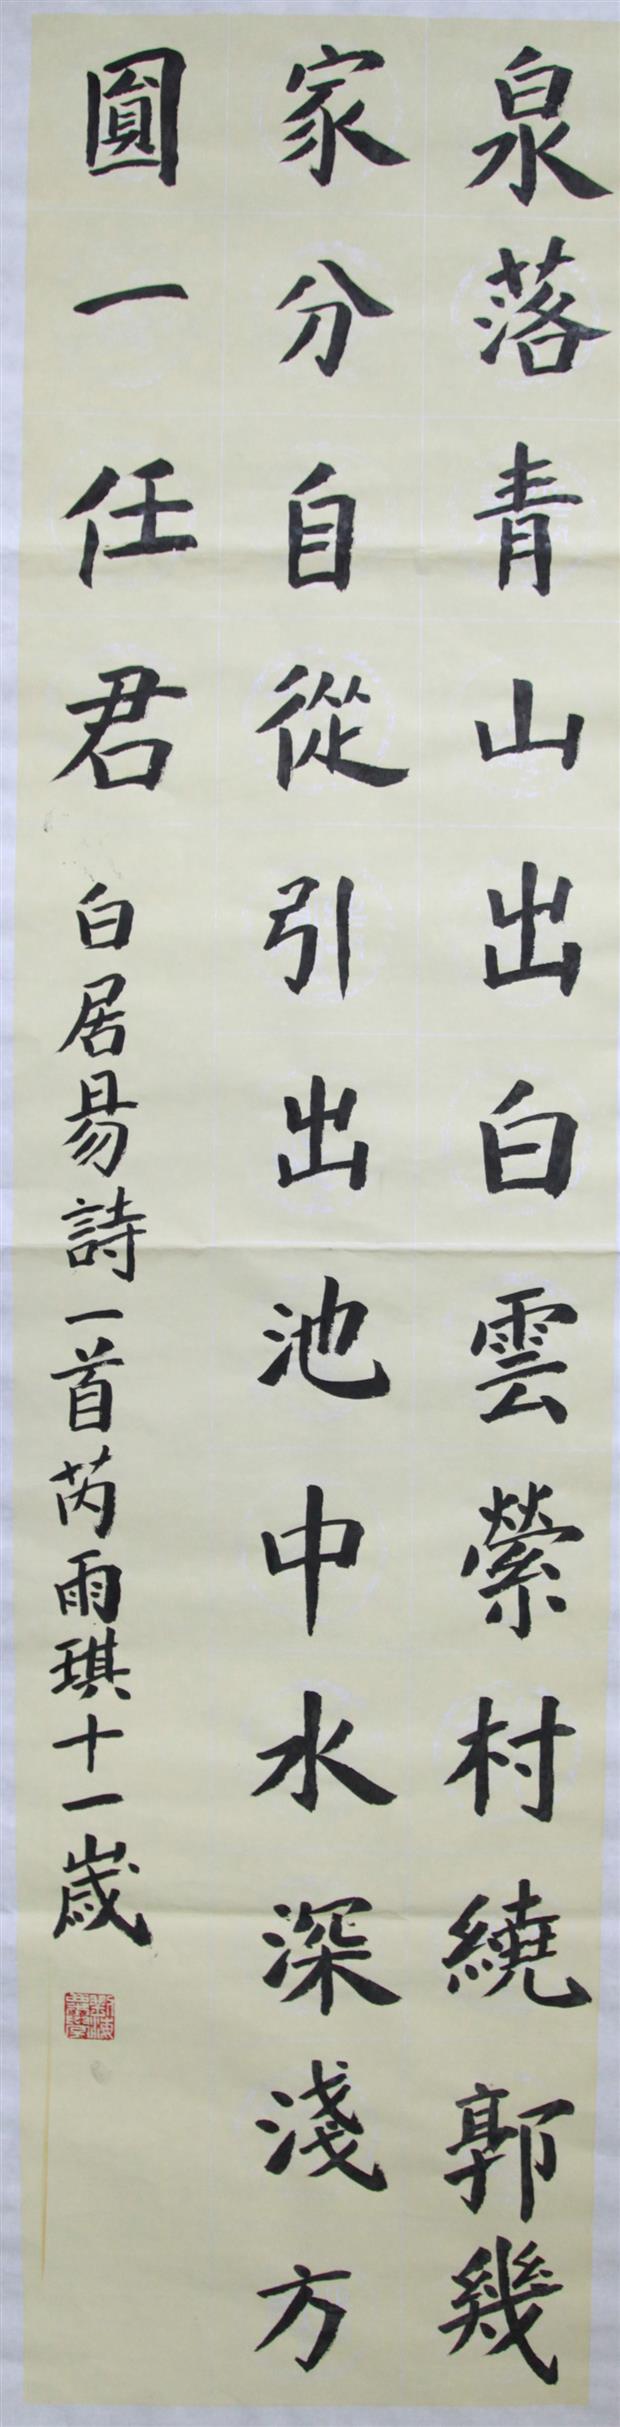 泉落青山出白雲縈村繞郭幾
家分自從引出池中水深淺方
圓一任君
白居昜詩一首芮雨琪十一歲